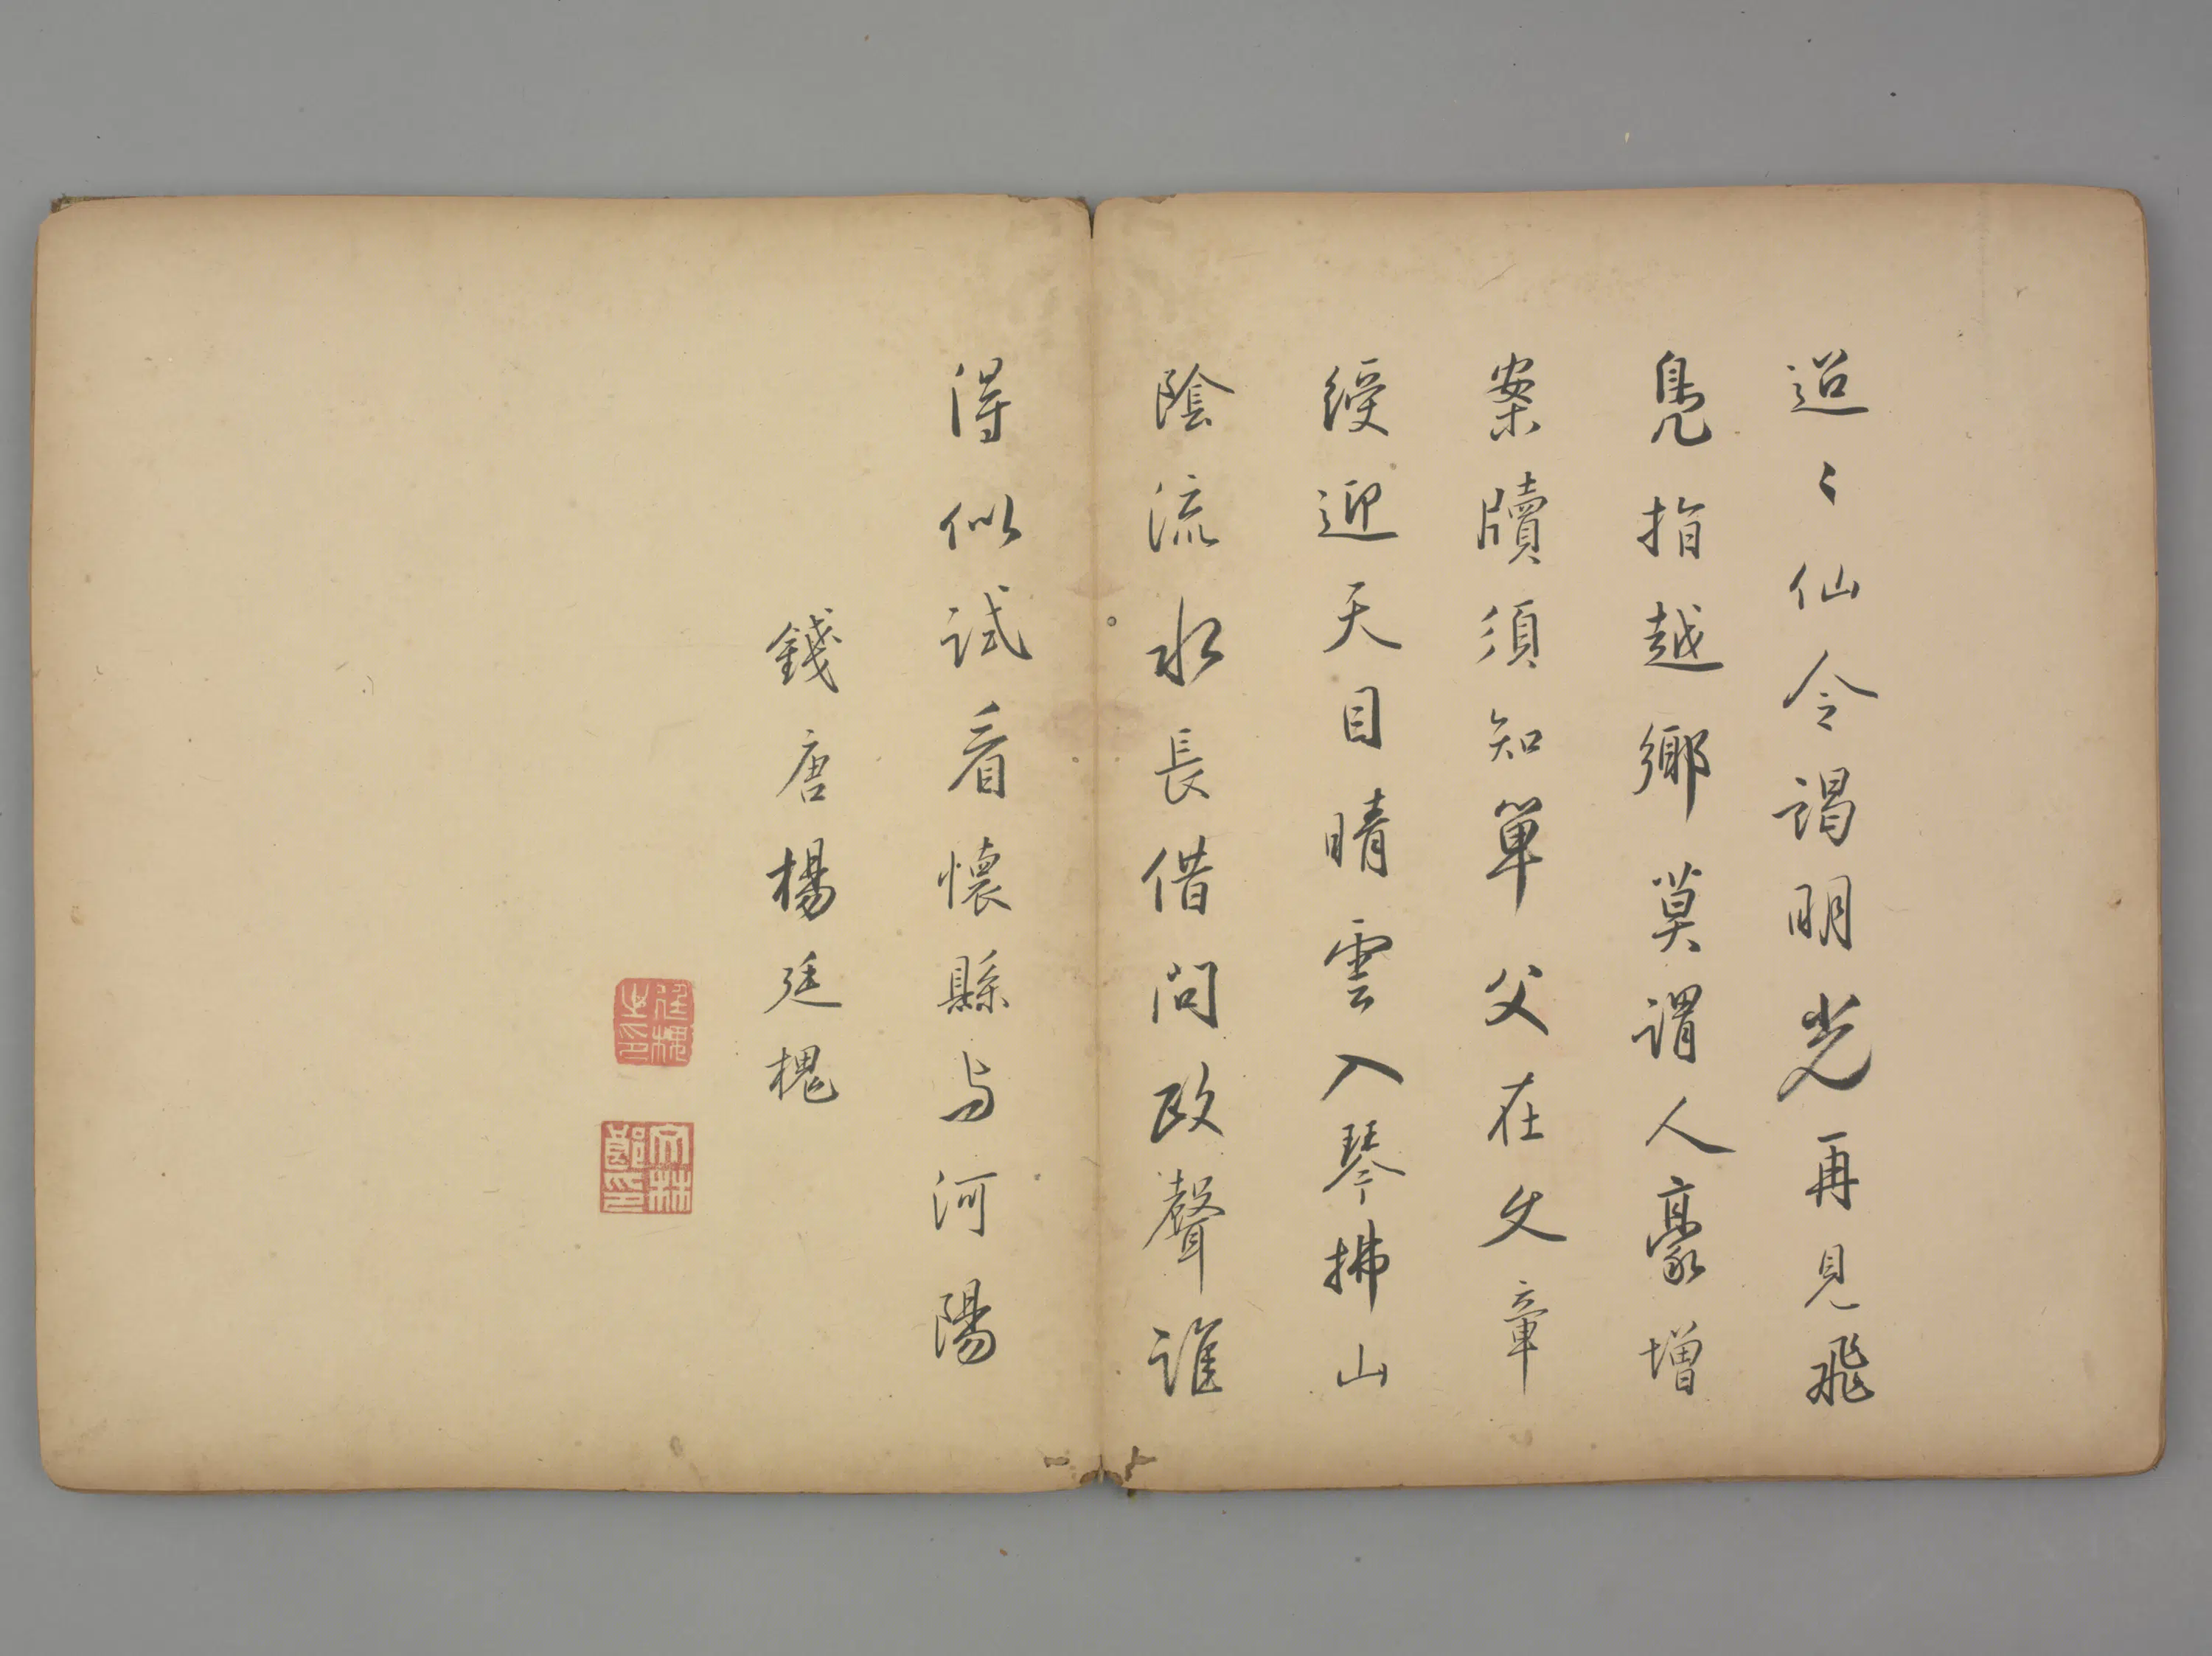 迢〻仙令謁明光再見飛
鳧指越鄉莫謂人豪增
案牘須知單父在文章
綬迎天目晴雲入琴拂山
陰流水長借問政聲誰
得似試看懷縣与河陽
錢唐楊廷槐
廷槐之印
文林郎印